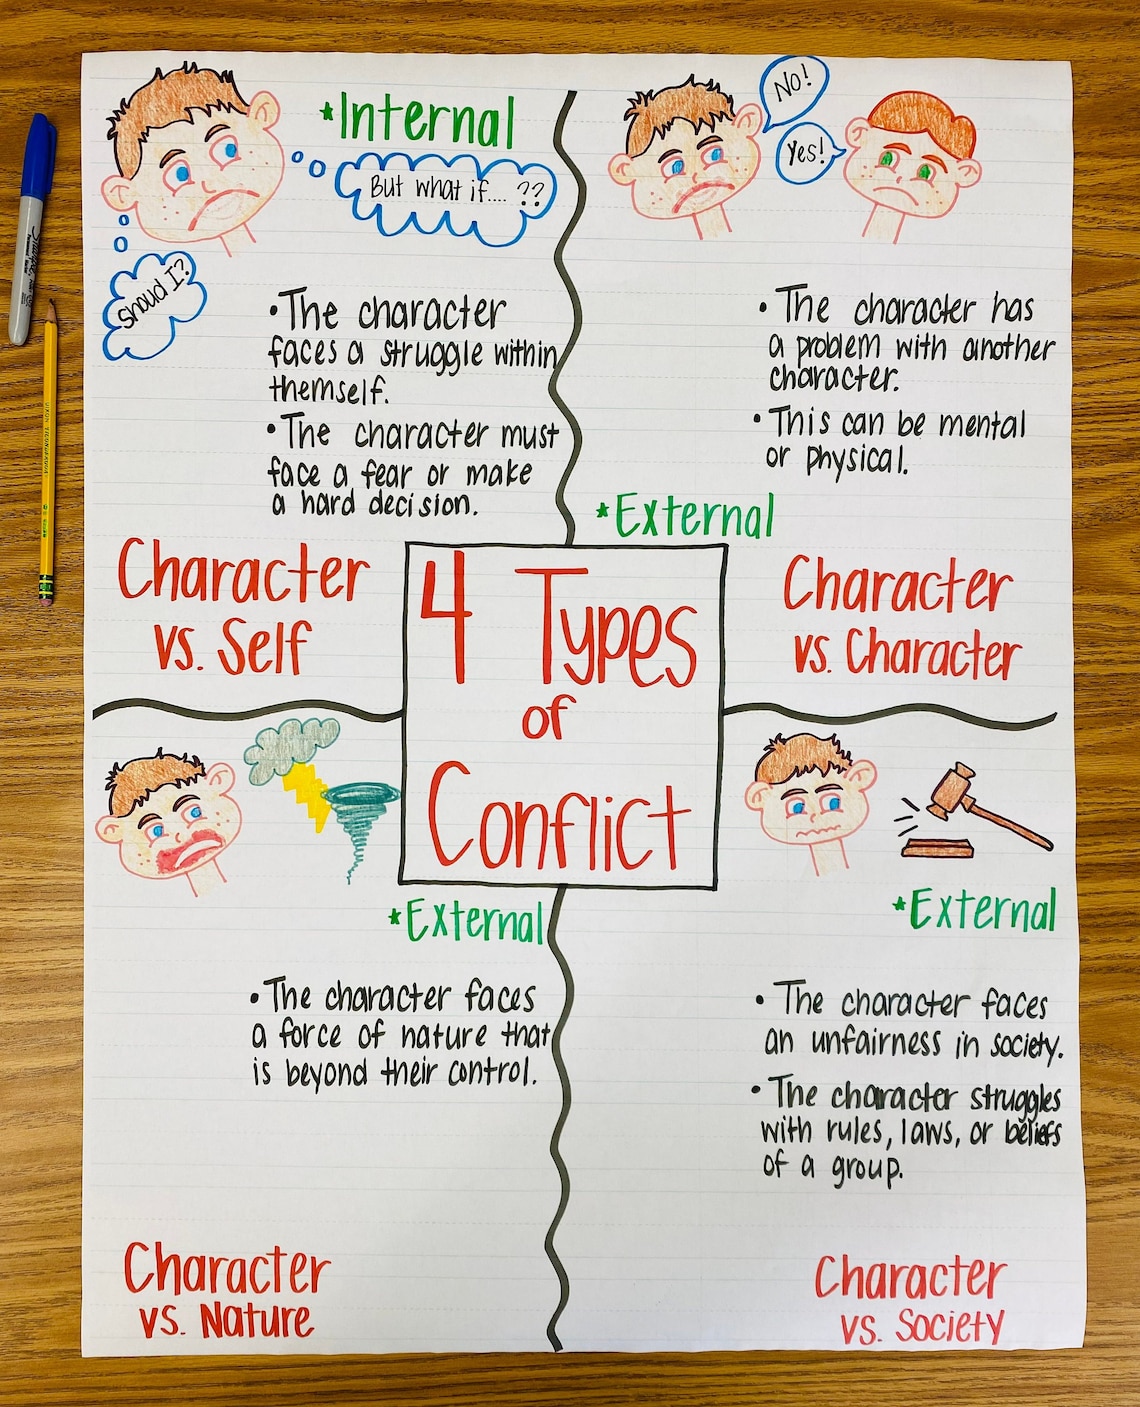 *Internal
But what if.... ??
Shoud I?
•The character
faces a struggle within
themself.
•The character must
face a fear or make
a hard decision.
Character
vs. Self
No!
Yes!
• The character has
a problem with another
character.
• This can be mental
or physical.
*External
Character
vs. Character
4 Types
of
Conflict
*External
• The character faces
a force of nature that
is beyond their control.
Character
vs. Nature
*External
• The character faces
an unfairness in society.
• The character struggles
with rules, laws, or beliefs
of a group.
Character
vs. Society
Sharpie